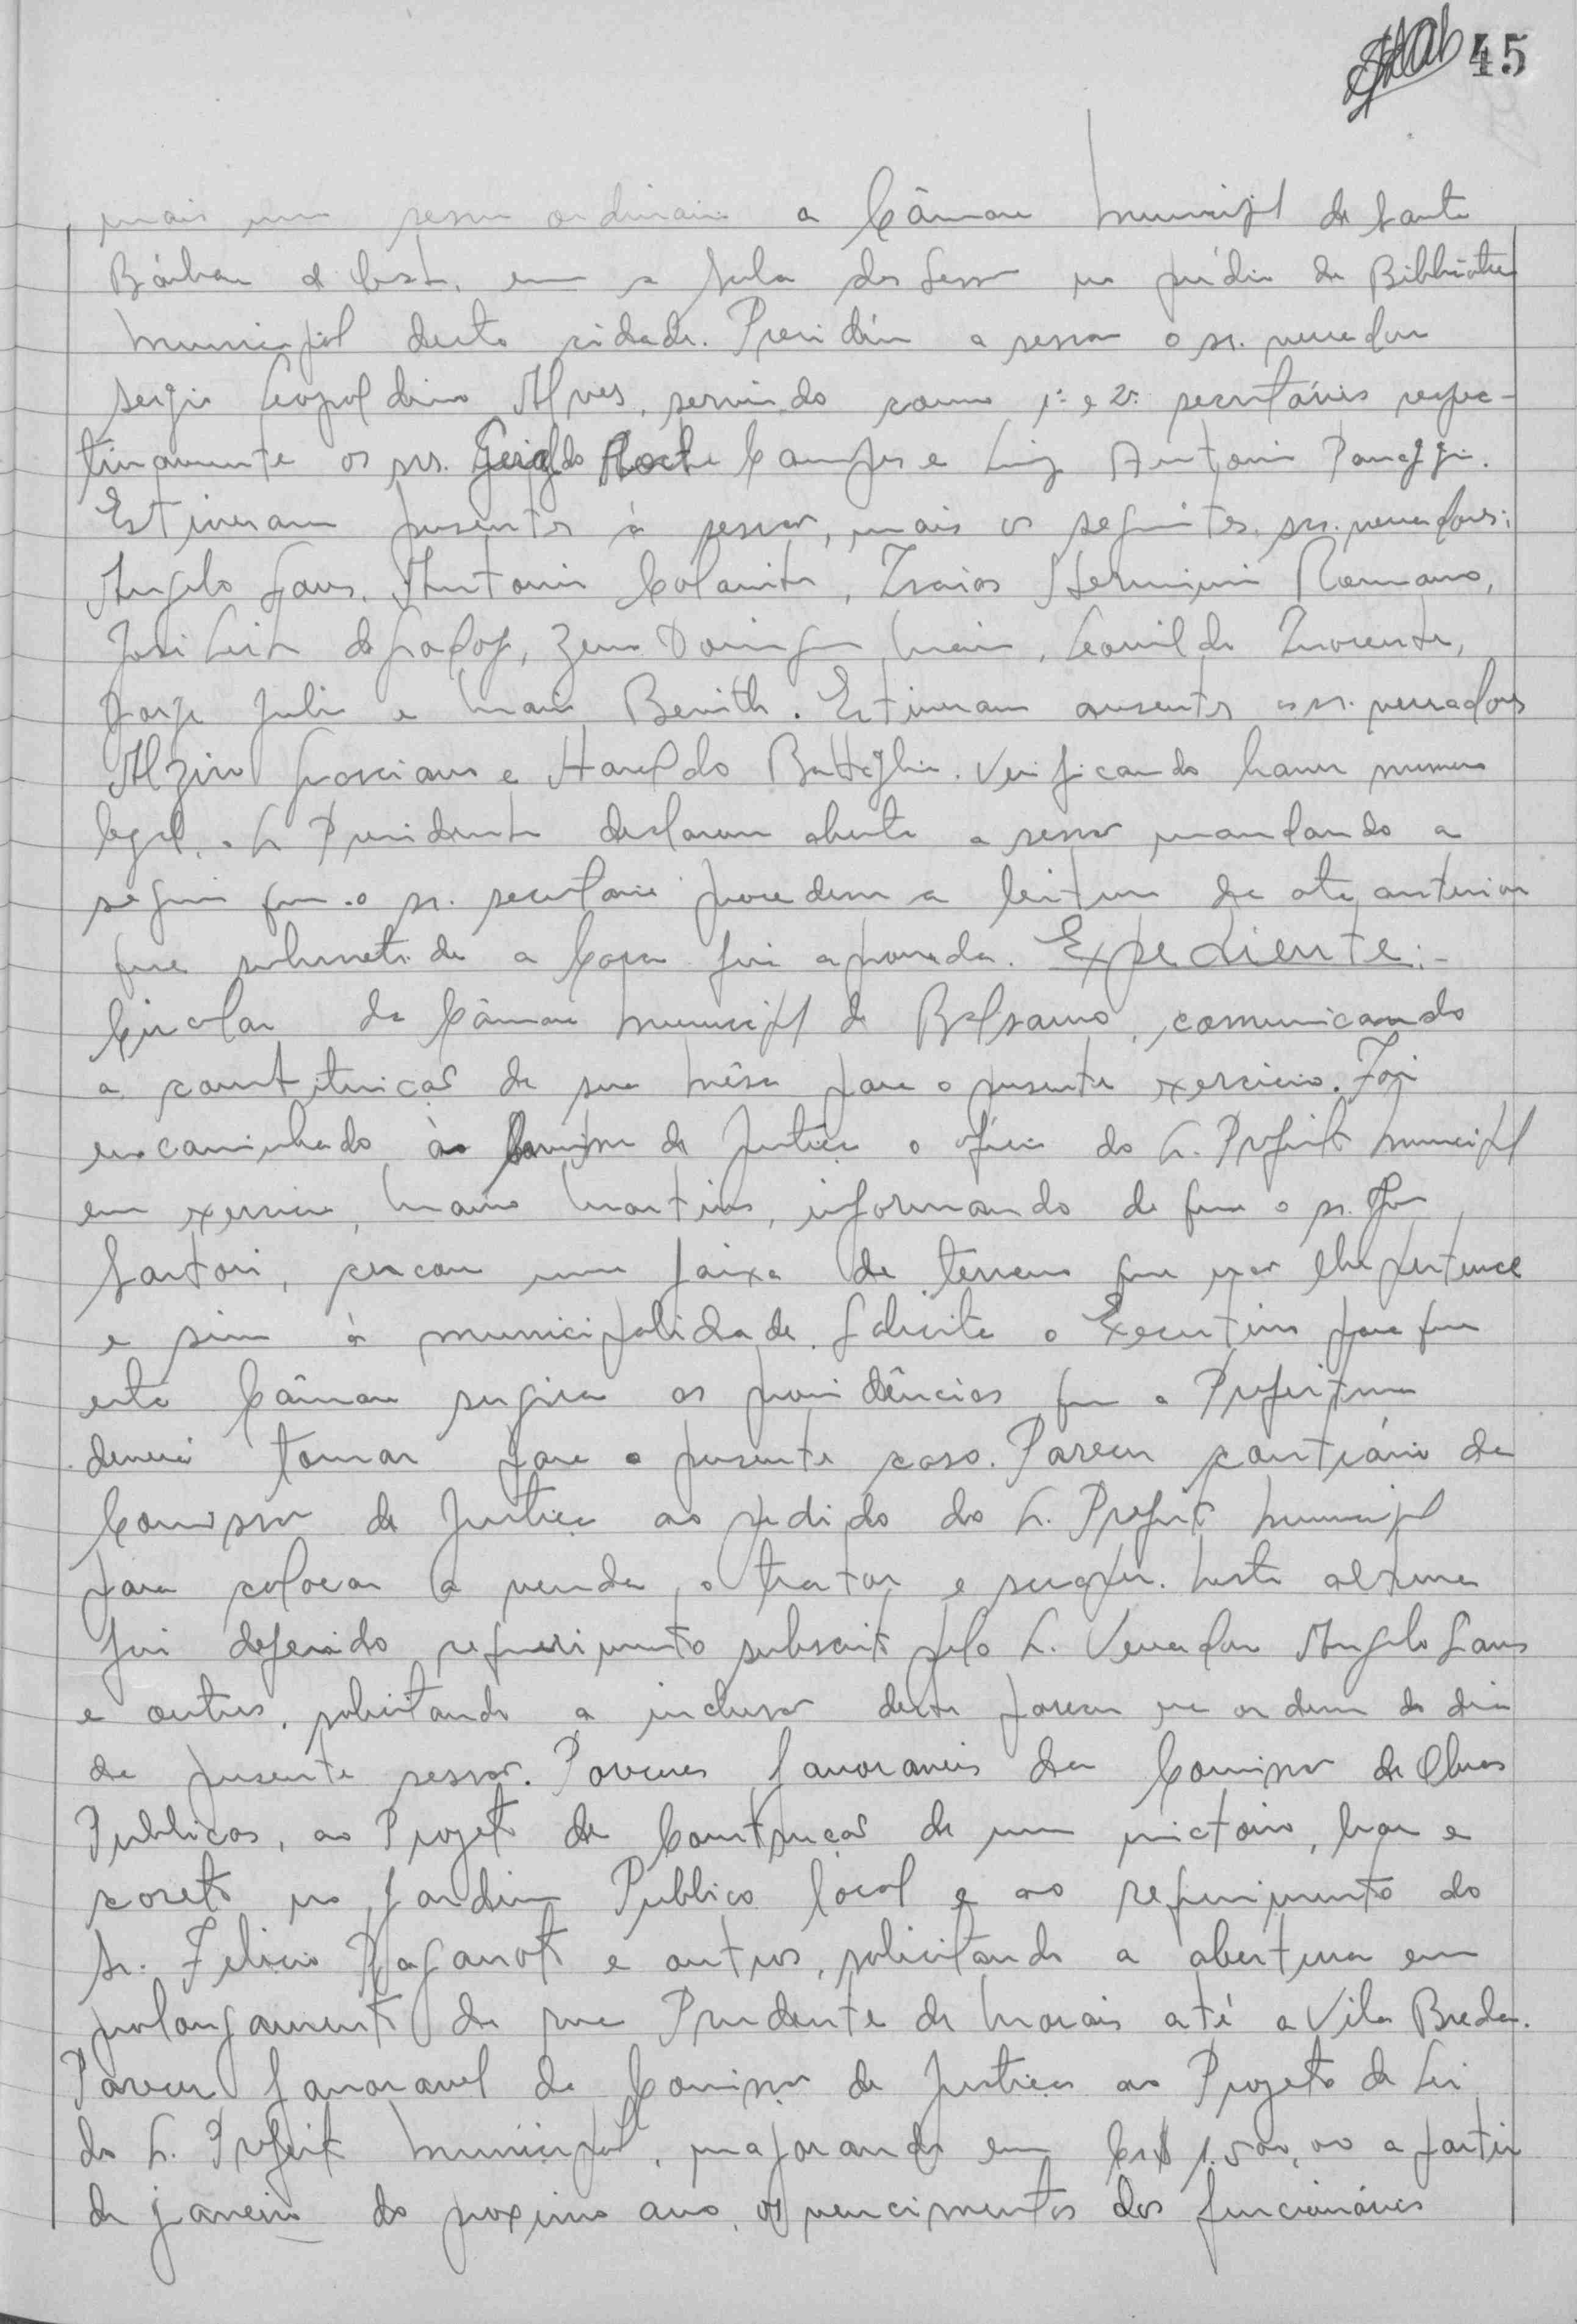 45
mais uma sessão ordinaria a Câmara Municipal de Santa
Bárbara d'Oeste, em a sala das Sessões no prédio da Biblioteca
Municipal desta cidade. Presidiu a sessão o sr. vereador
Sergio Leopoldino Alves, servindo como 1º e 2º secretários respec-
tivamente os srs. Geraldo Rocha Campos e Luiz Antonio Panaggio.
Estiveram presentes à sessão, mais os seguintes srs. vereadores:
Angelo Sans, Antonio Colamita, Izaias Herminio Romano,
José Leite de , Zeno Domingos Maia, Leonildo Inocente,
Jorge Juliu e Mario Benith. Estiveram ausentes os srs. vereadores
Alziro e Haroldo Battaglia. Verificando haver numero
legal, o Sr. Presidente declarou aberta a sessão mandando a
seguir que o sr. secretario procedesse a leitura da ata anterior
que submetida a Casa foi aprovada. Expediente:-
Circular da Câmara Municipal de Balsamo, comunicando
a constituição de sua Mêsa para o presente exercicio. Foi
encaminhado à Comissão de Justiça o oficio do Sr. Prefeito Municipal
em exercicio, Mario Martins, informando de que o sr.
Sartori, cercou uma faixa de terreno que não lhe pertence
e sim à municipalidade. Solicita o Executivo para que
esta Câmara sugira as providências que a Prefeitura
deverá tomar para o presente caso. Parecer contrário da
Comissão de Justiça ao pedido do Sr. Prefeito Municipal
para colocar a venda o trator e scraper. Neste altura
foi deferido requerimento subscrito pelo Sr. Vereador Angelo Sans
e outros, solicitando a inclusão deste parecer na ordem do dia
da presente sessão. Pareceres favoraveis da Comissão de Obras
Publicas, ao Projeto de Construção de um mictorio, bar e
coreto no Jardim Publico local e ao requerimento do
Sr. Felicio Paganoti e outros, solicitando a abertura em
prolongamento da rua Prudente de Morais até a Vila Breda.
Parecer favoravel da Comissão de Justiça ao Projeto de Lei
do Sr. Prefeito Municipal, majorando em Cr$ 1.500,00 a partir
de janeiro do proximo ano, os vencimentos dos funcionários